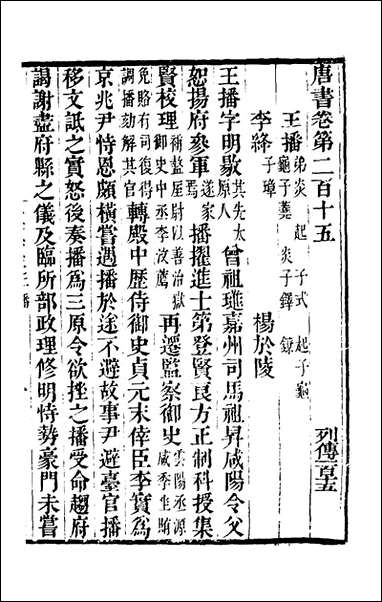 唐書卷第二百十五　列傳一百五
王播弟炎 起 子式 起子龜 龜子蕘 炎子鐸 鐐　楊於陵
李絳子璋
王播字明敭其先太原人曾祖璡嘉州司馬祖昇咸陽令父
恕揚府參軍遂家焉播擢進士第登賢良方正制科授集
賢校理補盩厔尉以善治獄御史中丞李汶薦再遷監察御史雲陽丞源咸季坐賄
免賂有司復得調播劾解其官轉殿中歷侍御史貞元末倖臣李實為
京兆尹恃恩頗橫嘗遇播於途不避故事尹避臺官播
移文詆之實怒後奏播為三原令欲挫之播受命趨府
謁謝盡府縣之儀及臨所部政理修明恃勢豪門未嘗